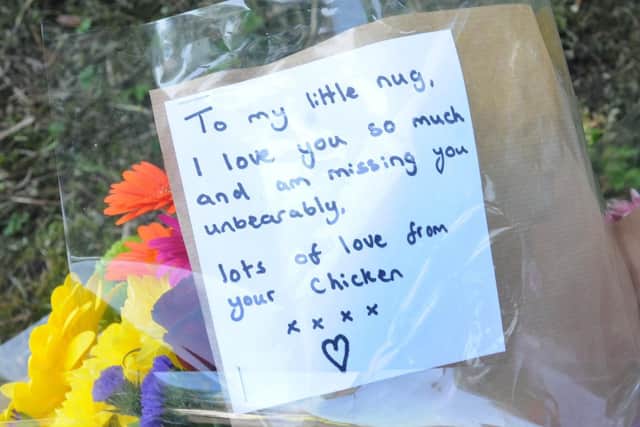 To my little nug,
I love you so much
and am missing you
unbearably,
lots of love from
your Chicken
x x x x